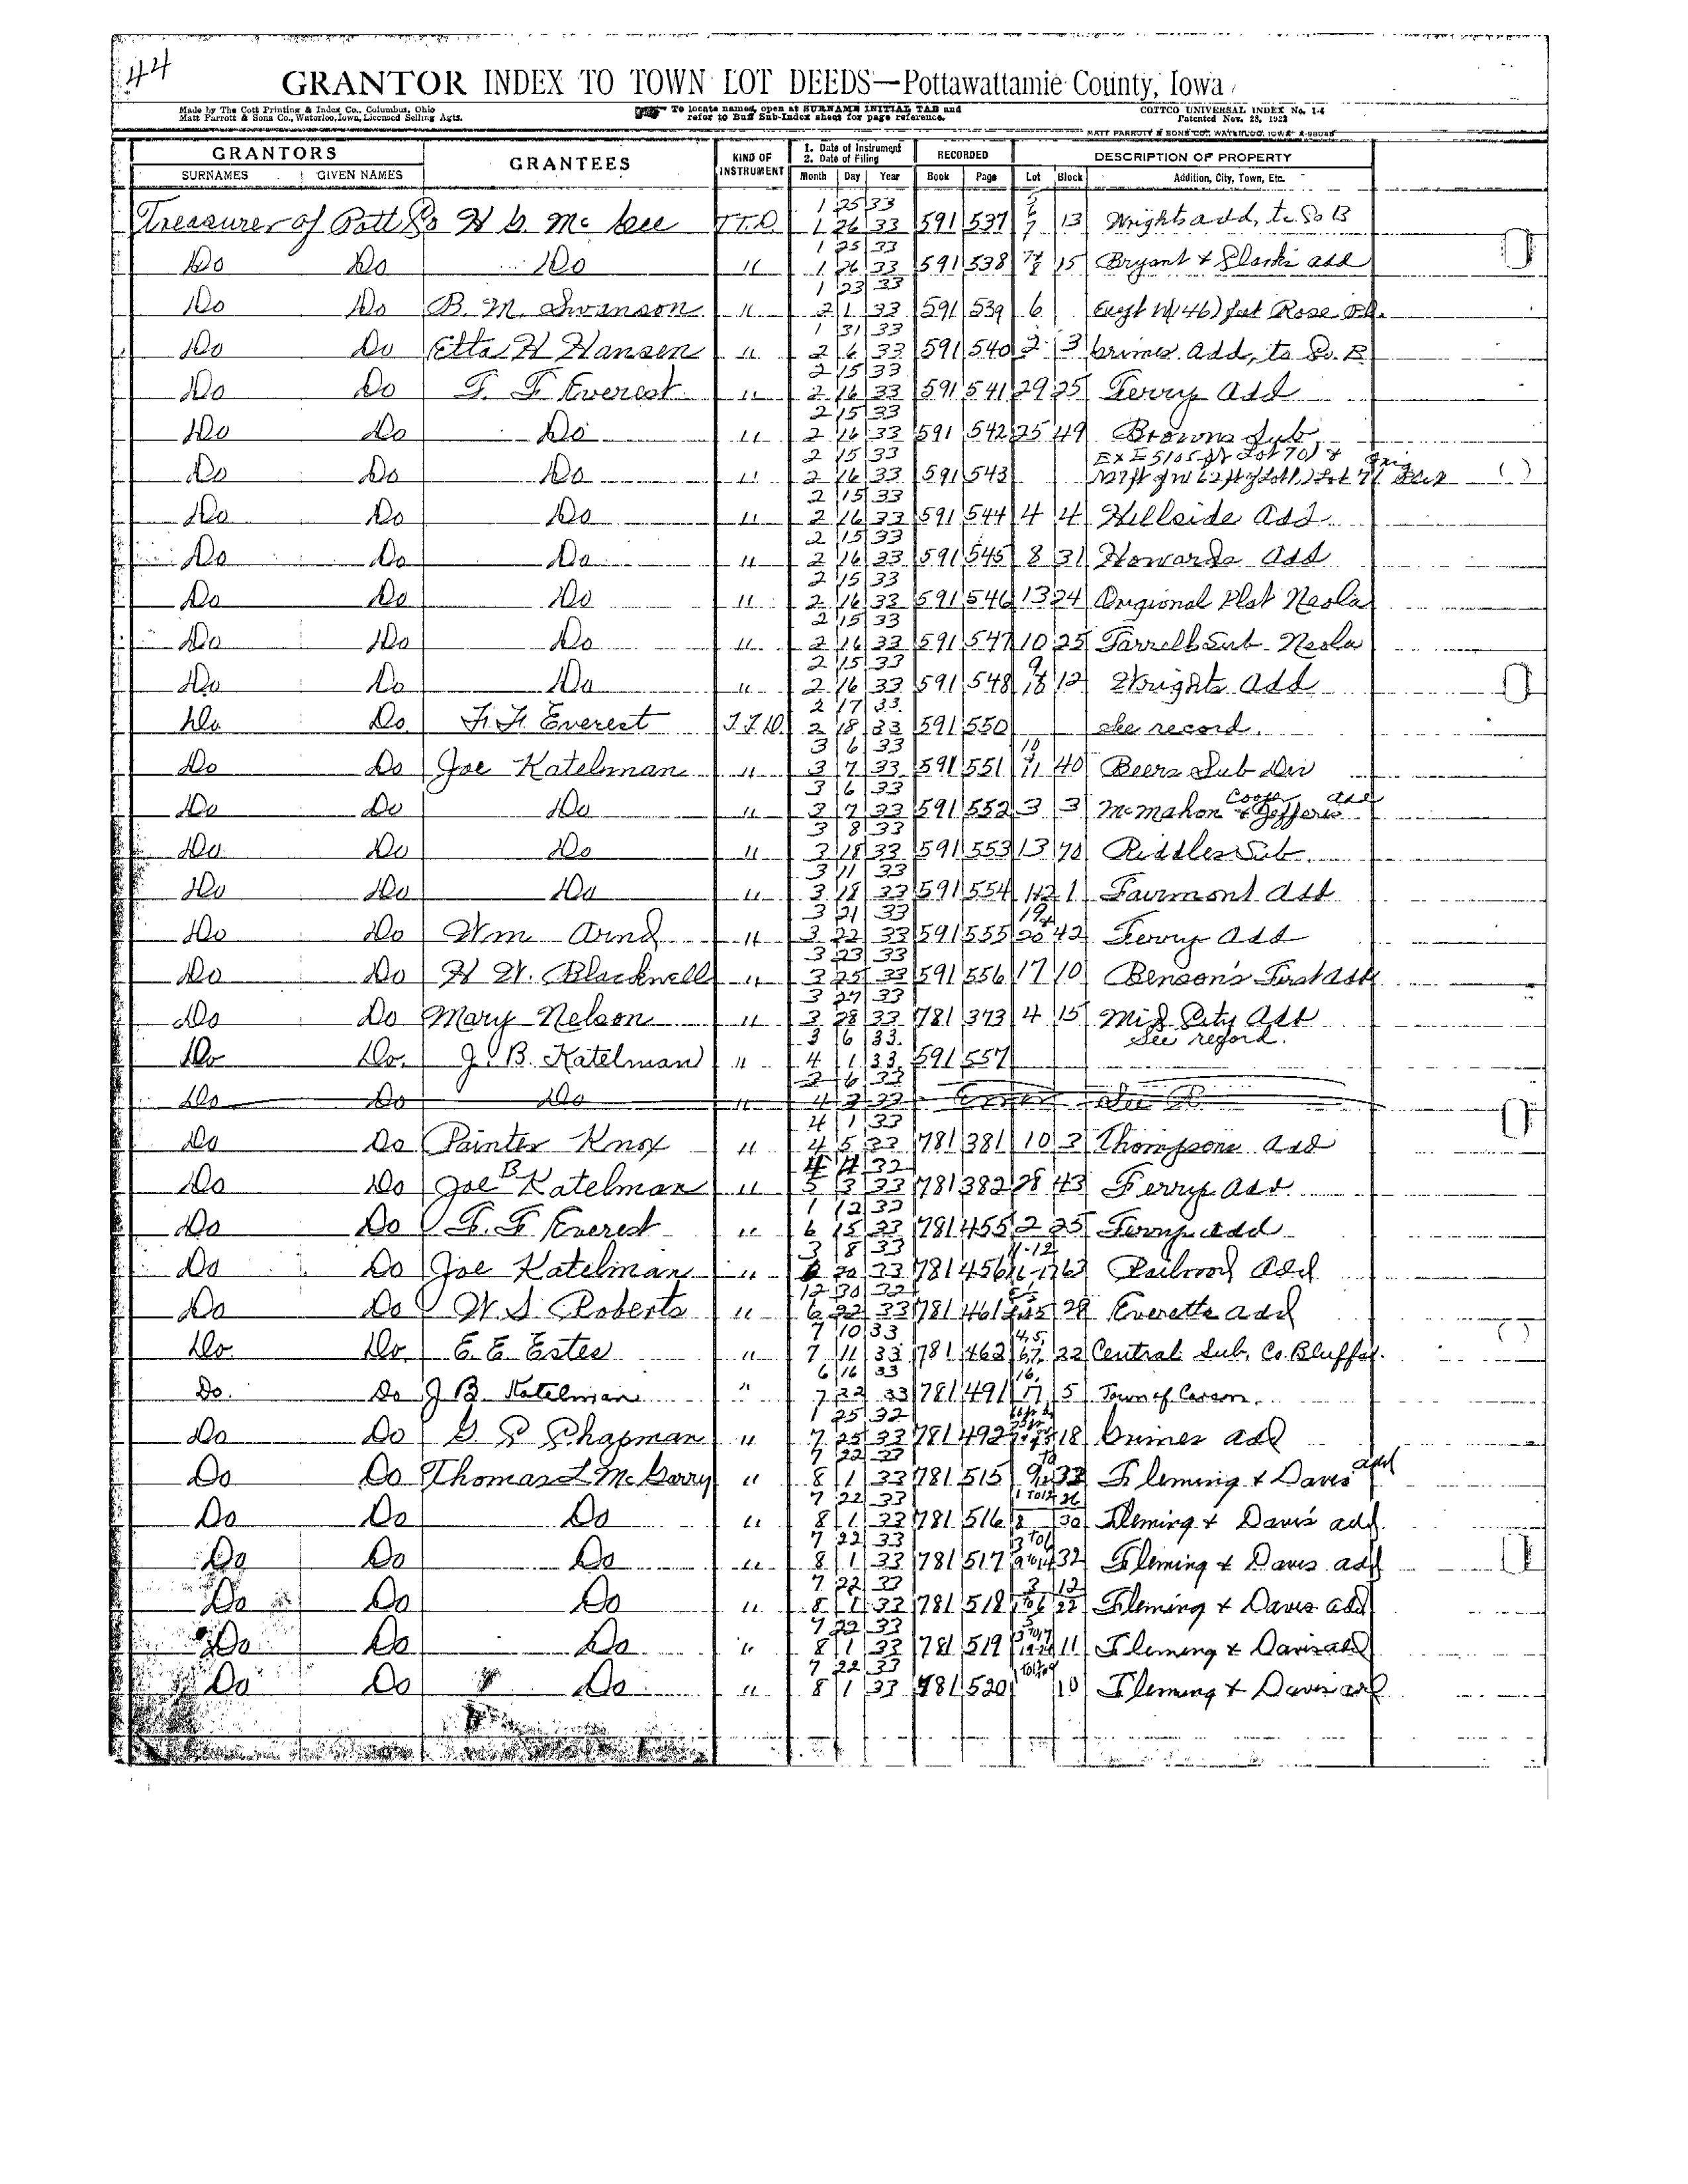 44
GRANTOR INDEX TO TOWN LOT DEEDS—Pottawattamie County, Iowa
Made by The Cott Printing & Index Co., Columbus, Ohio
Matt Parrott & Sons Co., Waterloo, Iowa, Licensed Selling Agts.
To locate names, open at SURNAME INITIAL TAB and
refer to Buff Sub-Index sheet for page reference.
COTTCO UNIVERSAL INDEX No. 1-4
Patented Nov. 28, 1922
MATT PARROTT & SONS CO., WATERLOO, IOWA
GRANTORS GRANTEES KIND OF INSTRUMENT 1. Date of Instrument 2. Date of Filing RECORDED DESCRIPTION OF PROPERTY
SURNAMES GIVEN NAMES Month Day Year Book Page Lot Block Addition, City, Town, Etc.
1 25 33
Treasurer of Pott Co T.T.D. 1 26 33 591 537 7 13 Wrights add, to Co B
1 25 33
Do Do Do " 1 26 33 591 538 15 Bryant & Clarks add
1 23 33
Do Do B. M. Swanson " 2 1 33 591 539 6
1 31 33
Do Do Etta H Hansen " 2 6 33 591 540 2 3 Grimes Add, to Co. B
2 15 33
Do Do F. F Everest " 2 16 33 591 541 29 25 Ferry Add
2 15 33
Do Do Do " 2 16 33 591 542 25 49 Browns Sub
2 15 33
Do Do Do " 2 16 33 591 543
2 15 33
Do Do Do " 2 16 33 591 544 4 4 Hillside Add
2 15 33
Do Do Do " 2 16 33 591 545 8 31 Howards Add
2 15 33
Do Do Do " 2 16 33 591 546 13 24 Origional Plat Neola
2 15 33
Do Do Do " 2 16 33 591 547 10 25 Farrells Sub Neola
2 15 33
Do Do Do " 2 16 33 591 548 12 Wrights Add
2 17 33
Do Do F. F. Everest T.T.D. 2 18 33 591 550 See record.
3 6 33 10
Do Do Joe Katelman " 3 7 33 591 551 11 40 Beers Sub Div
3 6 33
Do Do Do " 3 7 33 591 552 3 3 McMahon Cooper & Jefferis Add
3 8 33
Do Do Do " 3 18 33 591 553 13 70 Riddles Sub
3 11 33
Do Do Do " 3 18 33 591 554 1 Fairmont Add
3 21 33 19
Do Do Wm Arnd " 3 22 33 591 555 20 42 Ferry Add
3 23 33
Do Do H W. Blackwell " 3 25 33 591 556 17 10 Benson's First Add
3 27 33
Do Do Mary Nelson " 3 28 33 781 373 4 15 Mid City Add
3 6 33 See record.
Do Do. J. B. Katelman " 4 1 33 591 557
Do Do Do " Error
4 1 33
Do Do Painter Knox " 4 5 33 781 381 10 3 Thompsons Add
4 4 32
Do Do Joe B Katelman " 5 3 33 781 382 28 43 Ferry Add
1 12 32
Do Do F. F Everest " 6 15 33 781 455 2 25 Ferry Add
3 8 33 11-12
Do Do Joe Katelman " 6 20 33 781 456 63 Railroad Add
12 30 32
Do Do W. S. Roberts " 6 22 33 781 461 28 Everetts Add
7 10 33 4, 5,
Do Do. E. E. Estes " 7 11 33 781 462 6, 7, 22 Central Sub, Co. Bluffs.
6 16 33 16,
Do. Do J. B. Katelman " 7 22 33 781 491 17 5 Town of Carson.
1 25 32
Do Do G. S Chapman " 7 25 33 781 492 18 Grimes Add
7 22 33
Do Do Thomas L McGarry " 8 1 33 781 515 33 Fleming & Davis Add
7 22 33
Do Do Do " 8 1 33 781 516 30 Fleming & Davis add.
7 22 33
Do Do Do " 8 1 33 781 517 32 Fleming & Davis add
7 22 33
Do Do Do " 8 1 33 781 518 Fleming & Davis add
7 22 33
Do Do Do " 8 1 33 781 519 11 Fleming & Davis add
7 22 33
Do Do Do " 8 1 33 781 520 10 Fleming & Davis add